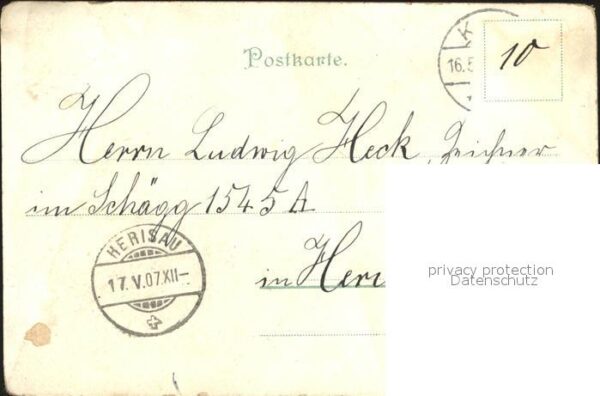 Postkarte.
16.5
10
Herrn Ludwig Heck, Zeichner
im Schägg 1545 A
HERISAU
17.V.07.XII–
in Heri
privacy protection
Datenschutz